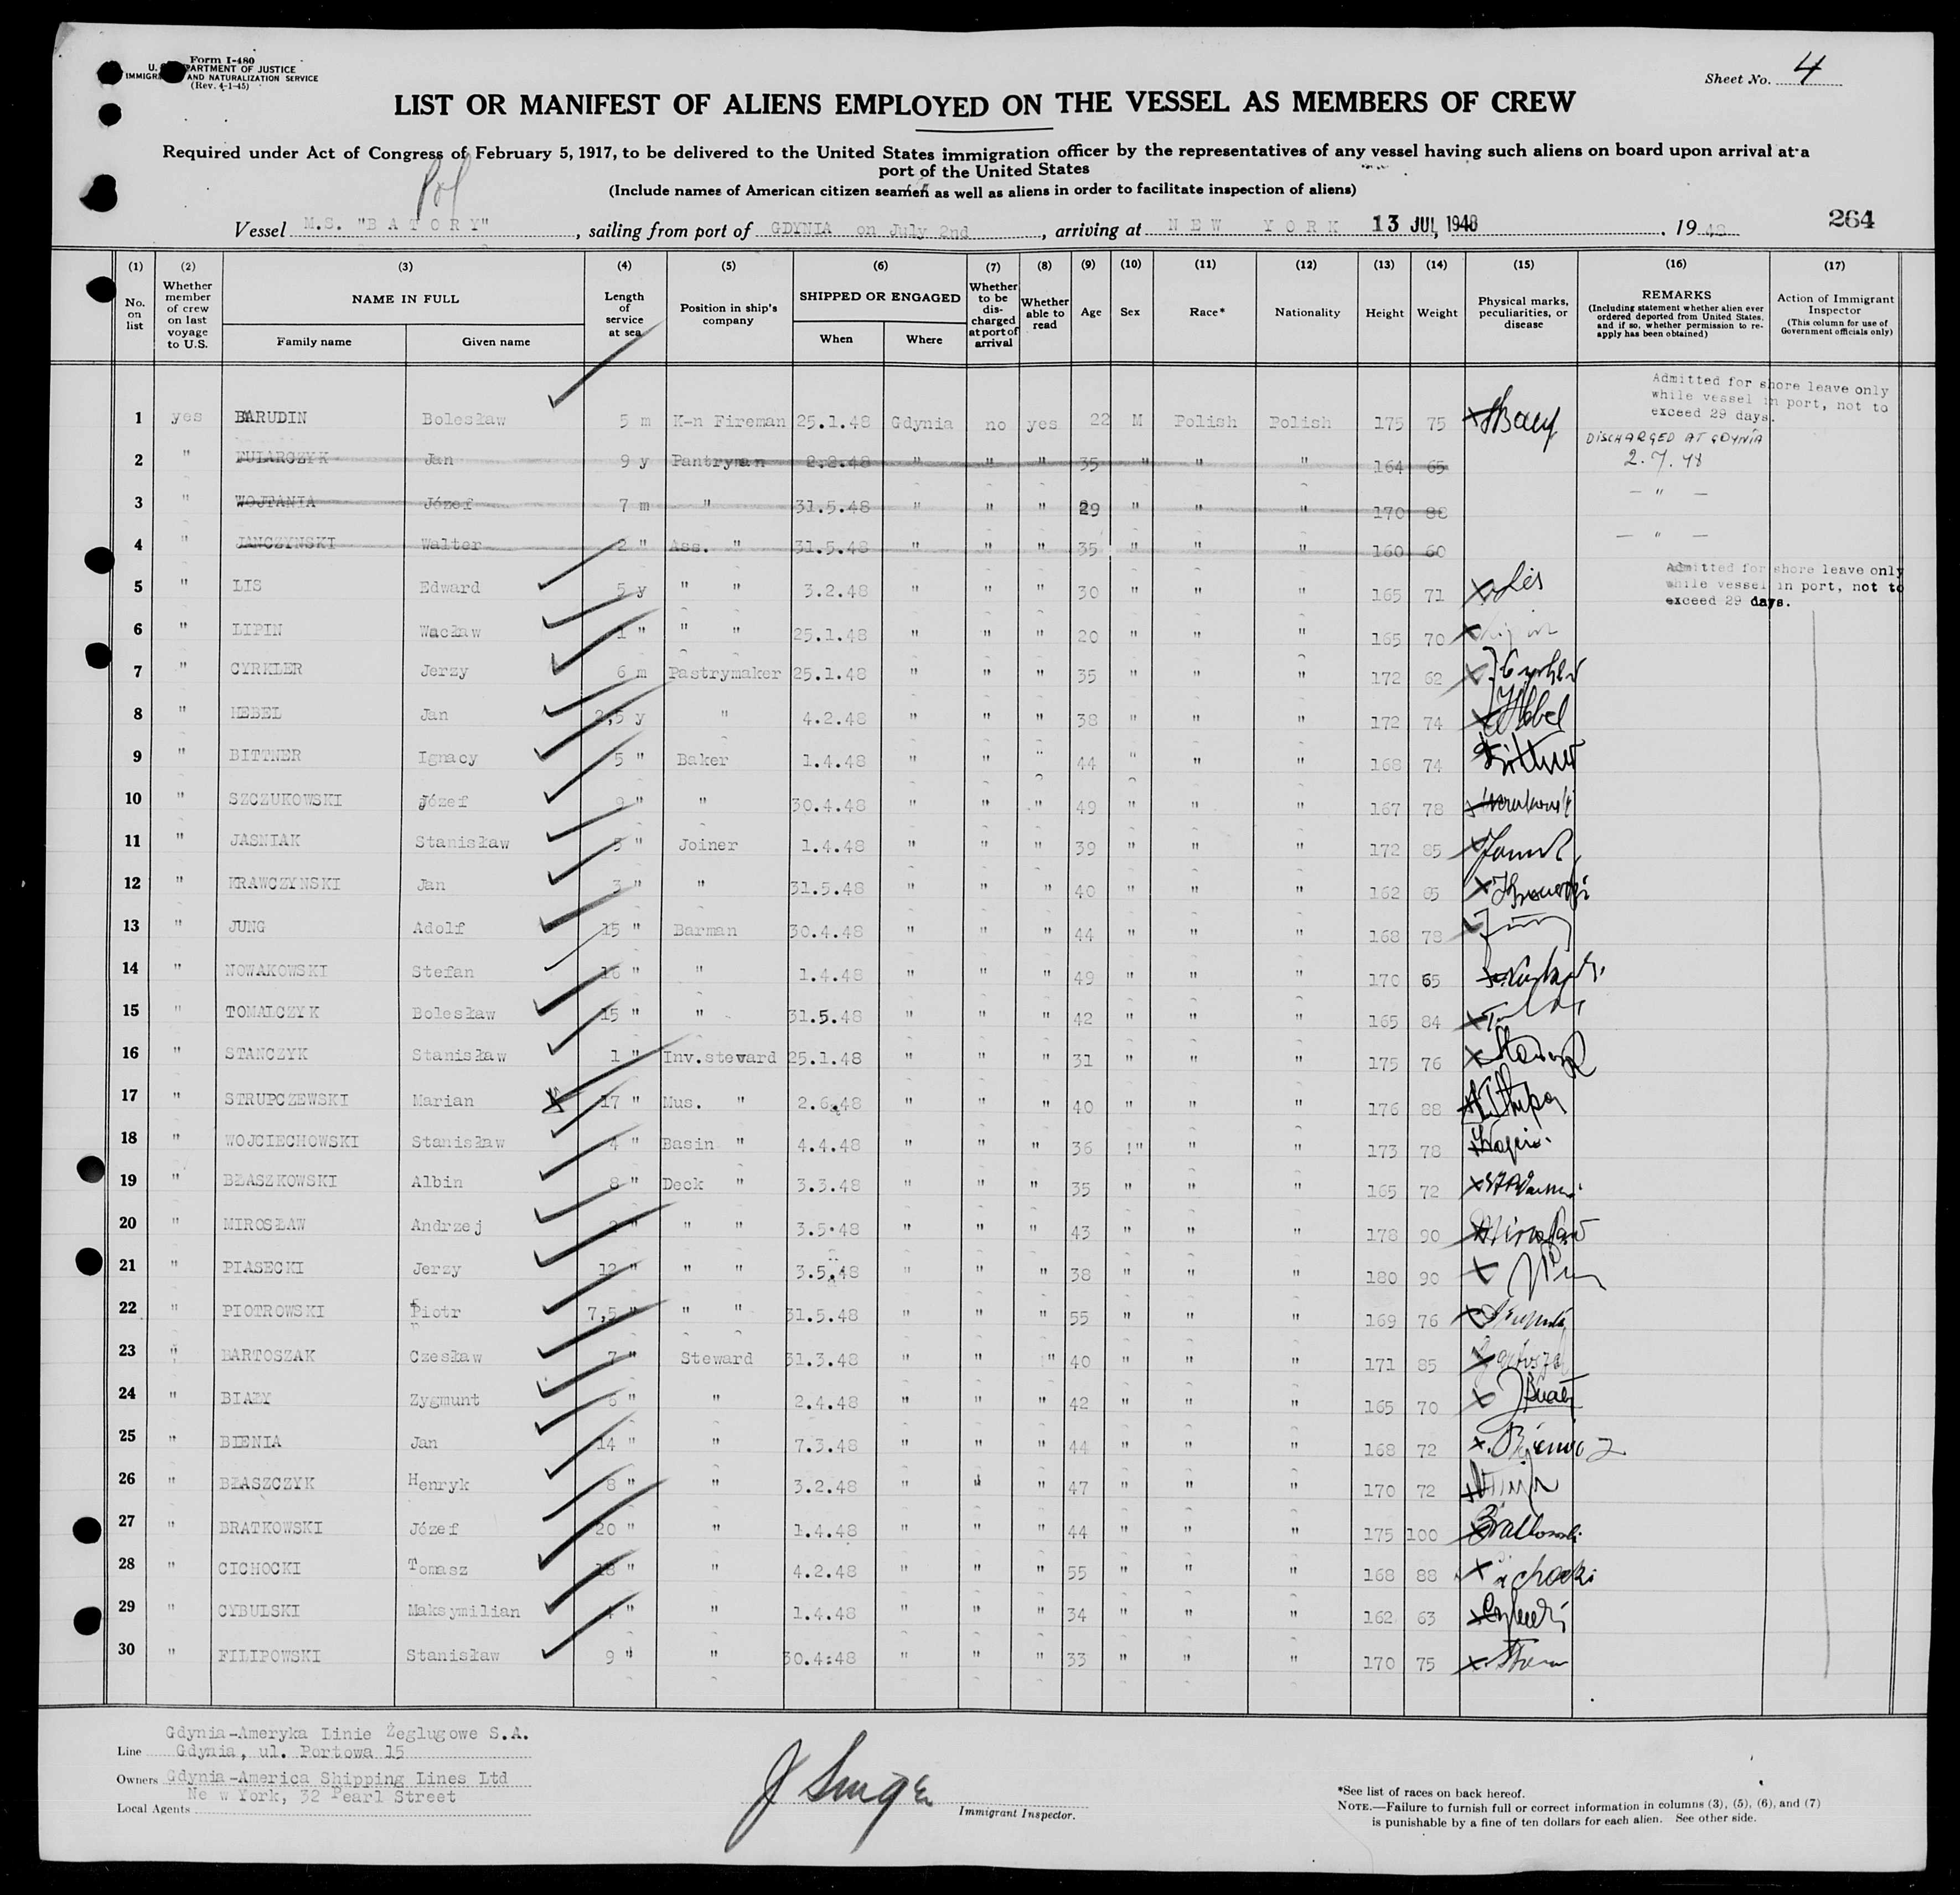 Form I-480
U. S. DEPARTMENT OF JUSTICE
IMMIGRATION AND NATURALIZATION SERVICE
(Rev. 4-1-45)
Sheet No. 4
LIST OR MANIFEST OF ALIENS EMPLOYED ON THE VESSEL AS MEMBERS OF CREW
Required under Act of Congress of February 5, 1917, to be delivered to the United States immigration officer by the representatives of any vessel having such aliens on board upon arrival at a
port of the United States
(Include names of American citizen seamen as well as aliens in order to facilitate inspection of aliens)
Pol
Vessel M.S. "B A T O R Y", sailing from port of GDYNIA on July 2nd, arriving at N E W Y O R K 13 JUL 1948, 1948 264
(1) (2) (3) (4) (5) (6) (7) (8) (9) (10) (11) (12) (13) (14) (15) (16) (17)
No. on list Whether member of crew on last voyage to U.S. NAME IN FULL Family name Given name Length of service at sea Position in ship's company SHIPPED OR ENGAGED When Where Whether to be discharged at port of arrival Whether able to read Age Sex Race* Nationality Height Weight Physical marks, peculiarities, or disease REMARKS (Including statement whether alien ever ordered deported from United States, and if so, whether permission to reapply has been obtained) Action of Immigrant Inspector (This column for use of Government officials only)
Admitted for shore leave only
while vessel in port, not to
exceed 29 days.
1 yes BARUDIN Bolesław 5 m K-n Fireman 25.1.48 Gdynia no yes 22 M Polish Polish 175 75
DISCHARGED AT GDYNIA
2.7.48
2 " FULARCZYK Jan 9 y Pantryman 2.2.48 " " " 35 " " " 164 65
3 " WOJTANIA Józef 7 m " 31.5.48 " " " 29 " " " 170 88 — " —
4 " JANCZYNSKI Walter 2 " Ass. " 31.5.48 " " " 35 " " " 160 60 — " —
Admitted for shore leave only
while vessel in port, not to
exceed 29 days.
5 " LIS Edward 5 y " " 3.2.48 " " " 30 " " " 165 71 Lis
6 " LIPIN Wacław 1 " " " 25.1.48 " " " 20 " " " 165 70 Lipin
7 " CYRKLER Jerzy 6 m Pastrymaker 25.1.48 " " " 35 " " " 172 62 J Cyrkler
8 " HEBEL Jan 2,5 y " 4.2.48 " " " 38 " " " 172 74 JHebel
9 " BITTNER Ignacy 5 " Baker 1.4.48 " " " 44 " " " 168 74 Bittner
10 " SZCZUKOWSKI Józef 9 " " 30.4.48 " " " 49 " " " 167 78
11 " JASNIAK Stanisław 3 " Joiner 1.4.48 " " " 39 " " " 172 85
12 " KRAWCZYNSKI Jan 3 " " 31.5.48 " " " 40 " " " 162 65
13 " JUNG Adolf 15 " Barman 30.4.48 " " " 44 " " " 168 78 Jung
14 " NOWAKOWSKI Stefan 16 " " 1.4.48 " " " 49 " " " 170 65
15 " TOMALCZYK Bolesław 15 " " 31.5.48 " " " 42 " " " 165 84
16 " STANCZYK Stanisław 1 " Inv.steward 25.1.48 " " " 31 " " " 175 76
17 " STRUPCZEWSKI Marian 17 " Mus. " 2.6.48 " " " 40 " " " 176 88
18 " WOJCIECHOWSKI Stanisław 4 " Basin " 4.4.48 " " " 36 " " " 173 78
19 " BŁASZKOWSKI Albin 8 " Deck " 3.3.48 " " " 35 " " " 165 72
20 " MIROSŁAW Andrzej 2 " " " 3.5.48 " " " 43 " " " 178 90 Mirosław
21 " PIASECKI Jerzy 12 " " " 3.5.48 " " " 38 " " " 180 90
22 " PIOTROWSKI Piotr 7,5 " " " 31.5.48 " " " 55 " " " 169 76
23 " BARTOSZAK Czesław 7 " Steward 31.3.48 " " " 40 " " " 171 85
24 " BIAŁY Zygmunt 6 " " 2.4.48 " " " 42 " " " 165 70 Biały
25 " BIENIA Jan 14 " " 7.3.48 " " " 44 " " " 168 72
26 " BŁASZCZYK Henryk 8 " " 3.2.48 " " " 47 " " " 170 72
27 " BRATKOWSKI Józef 20 " " 1.4.48 " " " 44 " " " 175 100 Bratkowski
28 " CICHOCKI Tomasz 18 " " 4.2.48 " " " 55 " " " 168 88 Cichocki
29 " CYBULSKI Maksymilian 4 " " 1.4.48 " " " 34 " " " 162 63 Cybulski
30 " FILIPOWSKI Stanisław 9 " " 30.4.48 " " " 33 " " " 170 75
Gdynia-Ameryka Linie Żeglugowe S.A.
Line Gdynia, ul. Portowa 15
Owners Gdynia-America Shipping Lines Ltd
New York, 32 Pearl Street
Local Agents
J Singer
Immigrant Inspector.
*See list of races on back hereof.
NOTE.—Failure to furnish full or correct information in columns (3), (5), (6), and (7)
is punishable by a fine of ten dollars for each alien. See other side.